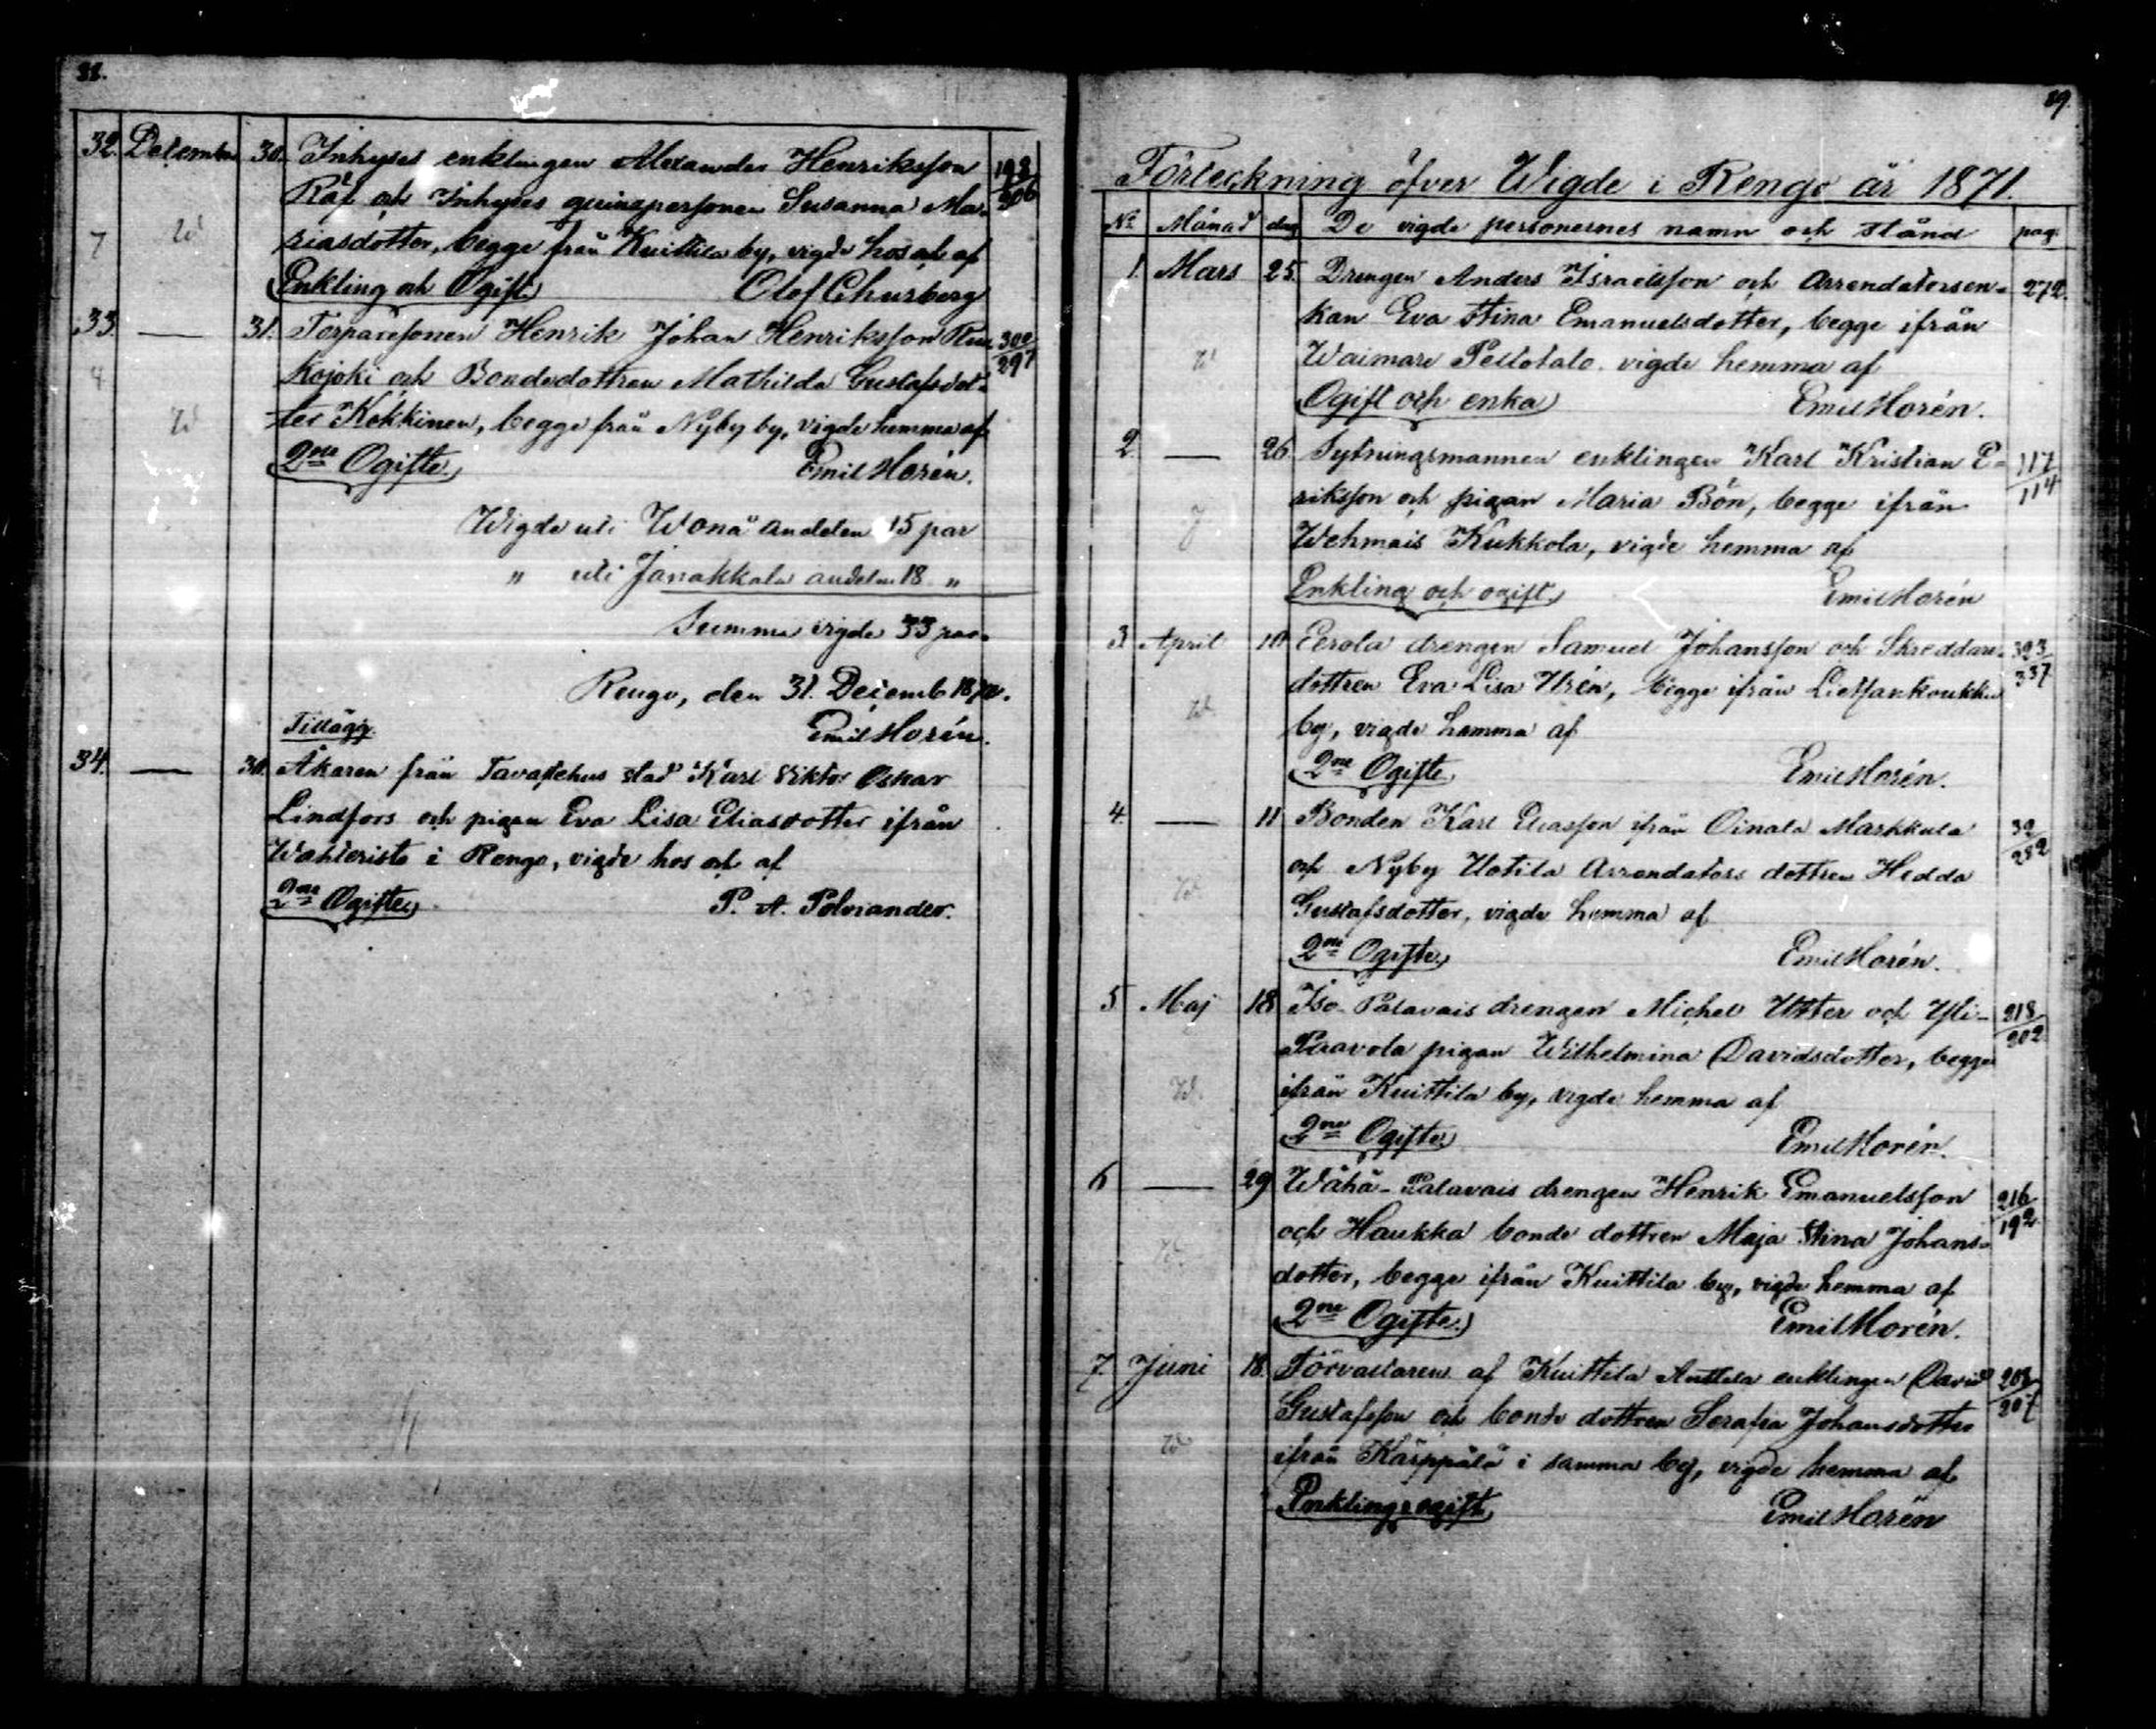 32. December 30. Inhyses enklingen Alexander Henriksson 198/206
Räf och Inhyses qvinspersonen Susanna Ma-
W
7 riasdotter, begge från Kuittila by, vigde hos och af
Enkling och Ogift. Olof Churberg
33. — 31. Torparesonen Henrik Johan Henriksson 302/297
4 kojoki och Bondedottren Mathilda Gustafsdot-
W ter Kokkinen, begge från Nyby by, vigde hemma af
2ne Ogifte. Emil Horén.
Wigde uti Wonå andelen 15 par
" uti Janakkala andelen 18 "
Summa vigde 33 par.
Rengo, den 31. Decemb 1870.
Tillägg. Emil Horén.
34. — 30. Åkaren från Tavastehus stad Karl Viktor Oskar
Lindfors och pigan Eva Lisa Eliasdotter ifrån
Wahteristo i Rengo, vigde hos och af
2ne Ogifte. P. A. Polviander.
29.
Förteckning öfver Wigde i Rengo år 1871.
No Månad dag De vigde personernes namn och stånd pag.
1. Mars 25. Drengen Anders Israelsson och Arrendatorsen- 272.
kan Eva Stina Emanuelsdotter, begge ifrån
W Waimare Peltotalo vigde hemma af
Ogift och enka Emil Horén.
2. — 26. Sytningsmannen enklingen Karl Kristian E- 117/114
riksson och pigan Maria Bön, begge ifrån
J Wehmais Kukkola, vigde hemma af
Enkling och ogift. Emil Horén
3 April 10 Eerola drengen Samuel Johansson och Skreddare- 323/337
dottren Eva Lisa Urén, begge ifrån Lietsankoukku
W by, vigde hemma af
2ne Ogifte Emil Horén.
4. — 11 Bonden Karl Eliasson ifrån Oinala Markkula 32/282
och Nyby Uotila Arrendators dottren Hedda
W Gustafsdotter, vigde hemma af
2ne Ogifte. Emil Horén.
5 Maj 18 Iso-Palavais drengen Michel Utter och Yli- 218/202
Paavola pigan Wilhelmina Davidsdotter, begge
W. ifrån Kuittila by, vigde hemma af
2ne Ogifte. Emil Horén.
6 — 29 Wähä-Palavais drengen Henrik Emanuelsson 216/192
och Haukka bonde dottren Maja Stina Johans-
W dotter, begge ifrån Kuittila by, vigde hemma af
2ne Ogifte. Emil Horén.
7. Juni 18. Förvaltaren af Kuittila Anttila enklingen David 208/207
Gustafsson och bonde dottren Serafia Johansdotter
W ifrån Käppälä i samma by, vigde hemma af
Enkling o ogift. Emil Horén